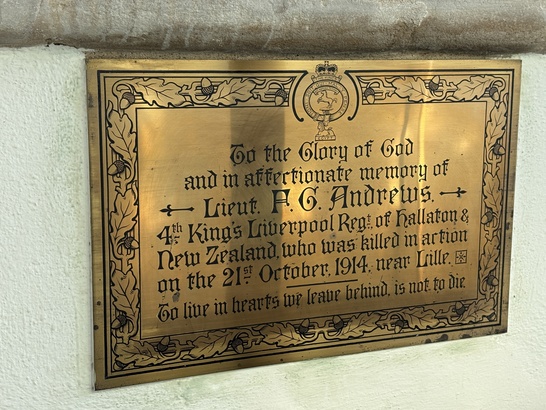 To the Glory of God
and in affectionate memory of
Lieut. F. G. Andrews.
4th King's Liverpool Regt. of Hallaton &
New Zealand, who was killed in action
on the 21st October, 1914, near Lille.
To live in hearts we leave behind, is not to die.